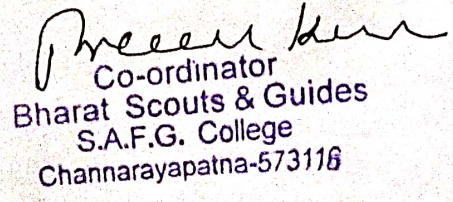 Co-ordinator
Bharat Scouts & Guides
S.A.F.G. College
Channarayapatna-573116